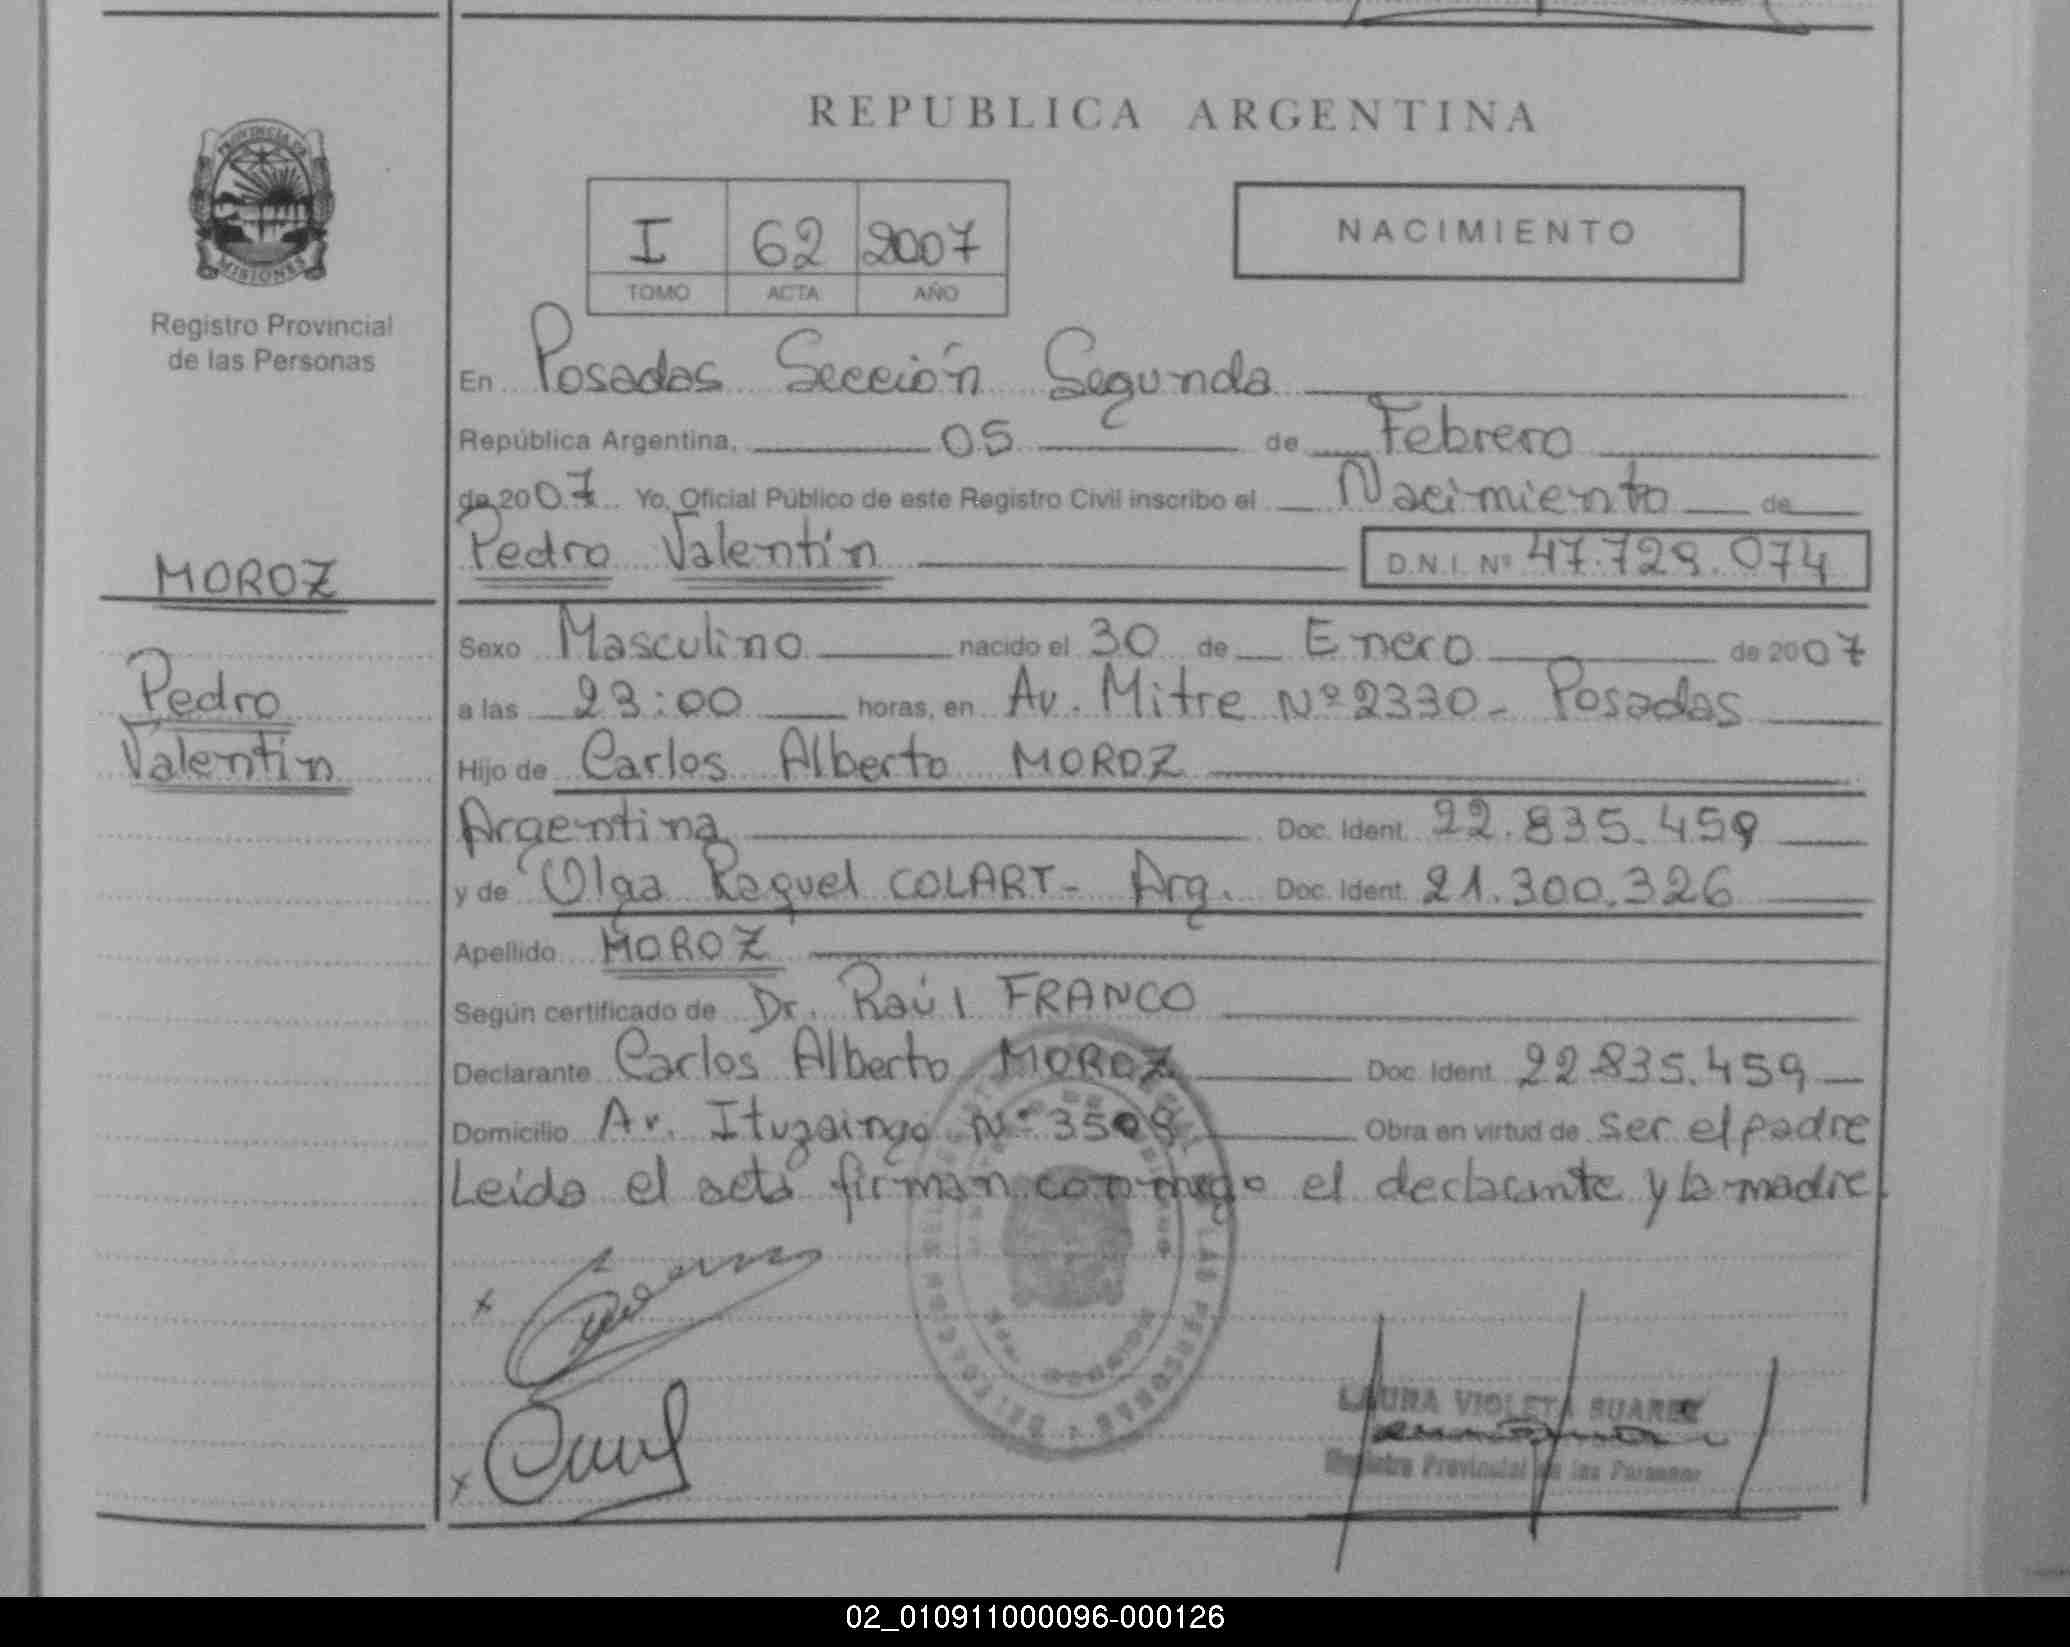 REPUBLICA ARGENTINA
PROVINCIA DE
MISIONES
Registro Provincial
de las Personas
I 62 2007
TOMO ACTA AÑO
NACIMIENTO
En Posadas Sección Segunda
República Argentina, 05 de Febrero
de 2007 Yo, Oficial Público de este Registro Civil inscribo el Nacimiento de
Pedro Valentín D.N.I. Nº 47.729.074
MOROZ
Pedro
Valentín
Sexo Masculino nacido el 30 de Enero de 2007
a las 23:00 horas, en Av. Mitre Nº 2330- Posadas
Hijo de Carlos Alberto MOROZ
Argentina Doc. Ident. 22.835.459
y de Olga Raquel COLART- Arg. Doc. Ident. 21.300.326
Apellido MOROZ
Según certificado de Dr. Raúl FRANCO
Declarante Carlos Alberto MOROZ Doc. Ident. 22.835.459
Domicilio Av. Ituzaingo Nº Obra en virtud de ser el padre
Leída el acta firman conmigo el declarante y la madre.
LAURA VIOLETA SUAREZ
Registro Provincial de las Personas
02_010911000096-000126